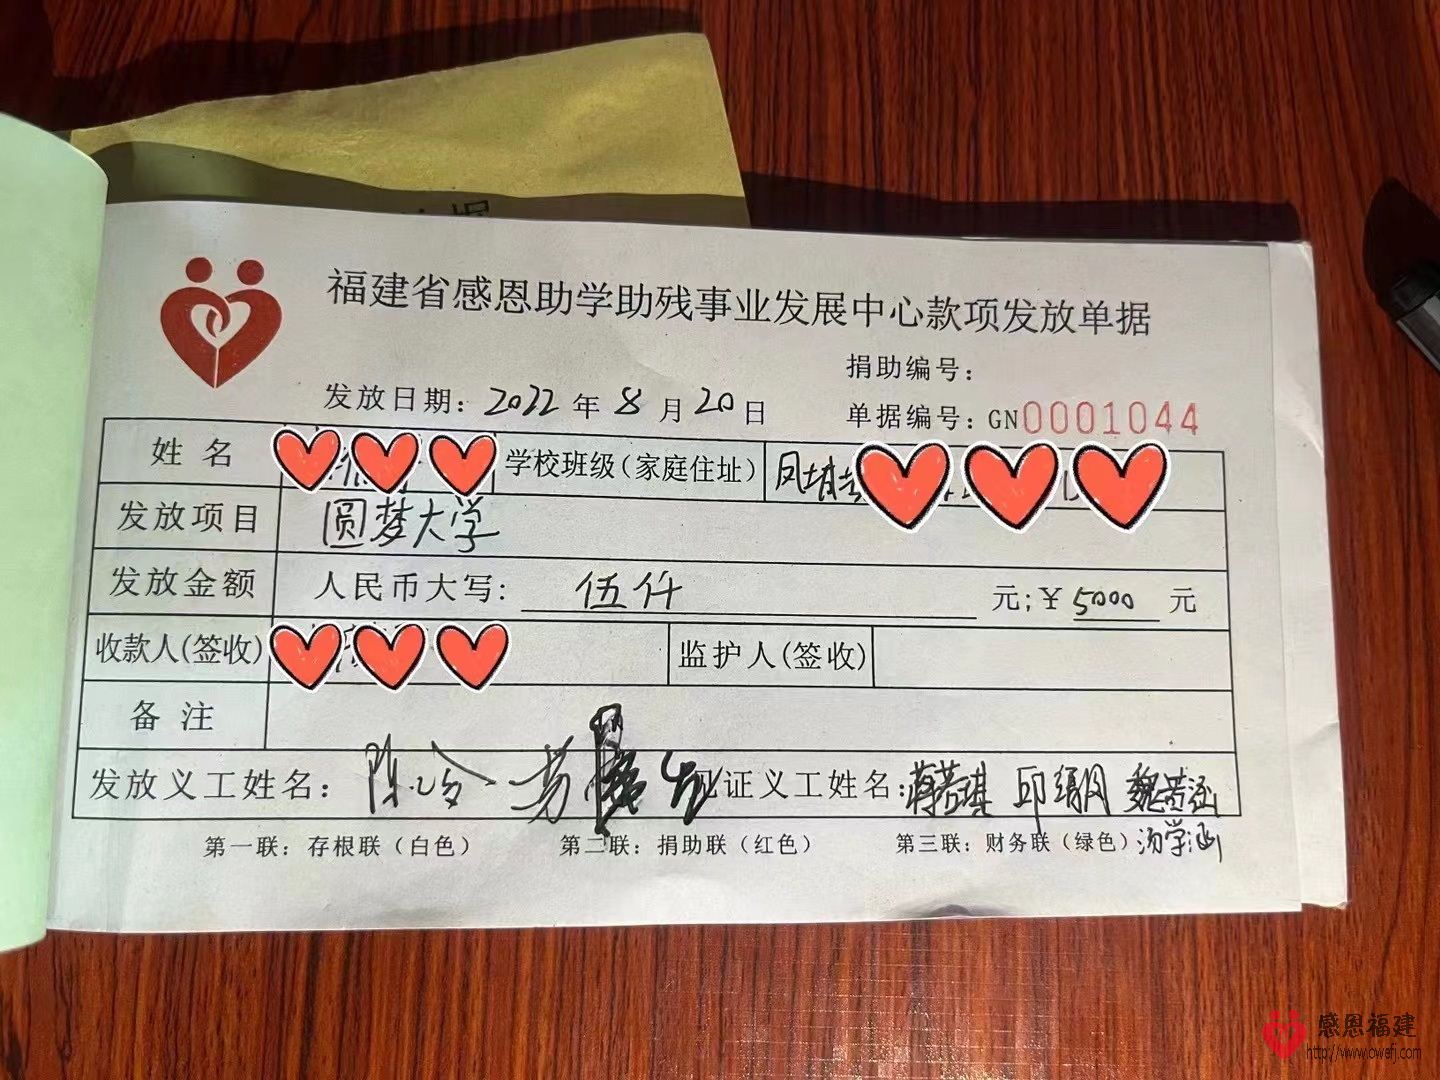 福建省感恩助学助残事业发展中心款项发放单据
捐助编号：
发放日期：2022年8月20日
单据编号：GN0001044
姓名 学校班级（家庭住址）
发放项目 圆梦大学
发放金额 人民币大写: 伍仟 元;¥5000 元
收款人(签收) 监护人(签收)
备注
发放义工姓名： 证义工姓名：蒋若琪 邱 魏芸涵
汤学涵
第一联：存根联（白色） 第二联：捐助联（红色） 第三联：财务联（绿色）
感恩福建
http://www.owefj.com